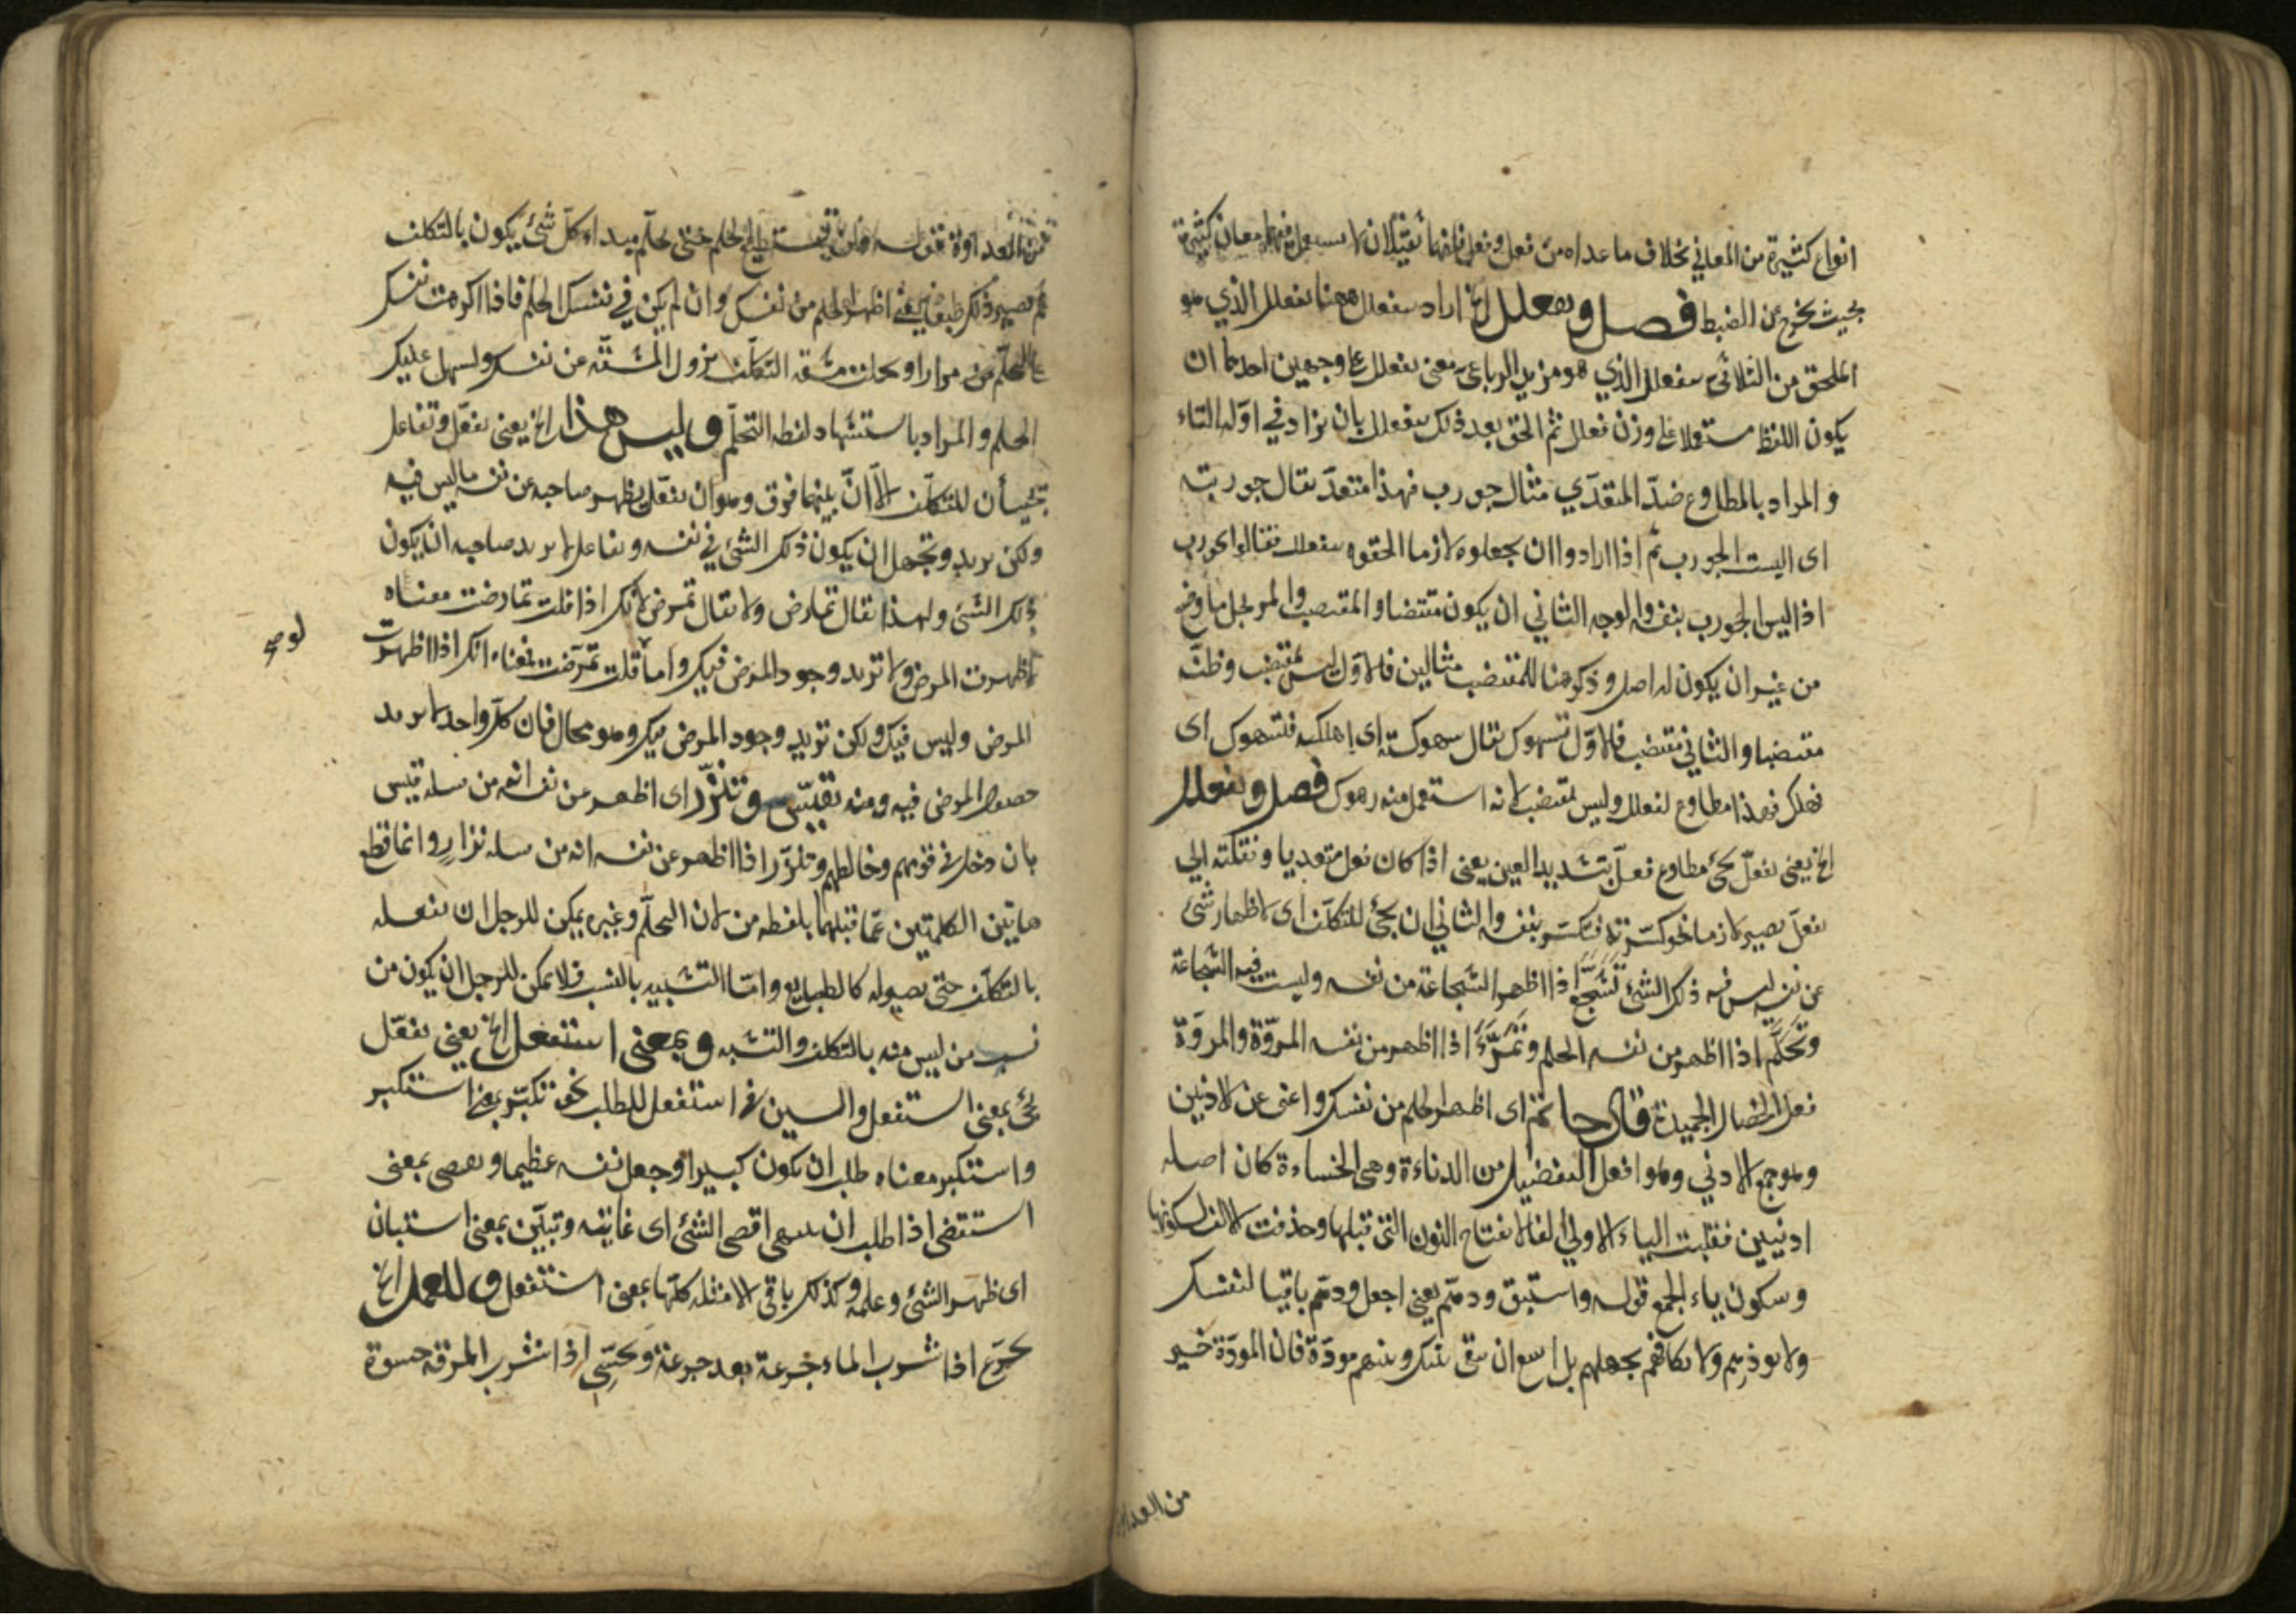 انواع كثيرة من المعاني بخلاف ما عداه من فعل وفعل فانهما ثقيلان لا يستعمل فيهما معان كثيرة
بحيث يخرج عن الضبط فصل وتفعلل الخ اراد بتفعلل ههنا تفعلل الذي هو
الملحق من الثلاثي بتفعلل الذي هو مزيد الرباعي معنى تفعلل على وجهين احدهما ان
يكون اللفظ مستعملا على وزن فعلل ثم الحق بعد ذلك بتفعلل بان يزاد في اوله التاء
والمراد بالمطاوع ضد المتعدي مثال جورب فهذا متعد يقال جوربته
اى البست الجورب ثم اذا ارادوا ان يجعلوه لازما الحقوه بتفعلل فقالوا تجورب
اذا لبس الجورب بنفسه والوجه الثاني ان يكون مقتضبا والمقتضب المرتجل ما وضع
من غير ان يكون له اصل وذكر هنا للمقتضب مثالين فالاول ليس بمقتضب وظنه
مقتضبا والثاني مقتضب فالاول تسهوك يقال سهوكته اى اهلكته فتسهوك اى
فهلك فهذا مطاوع لفعلل وليس بمقتضب لانه استعمل منه رهوك فصل وتفعلل
الخ يعنى تفعل يجئ مطاوع فعل بتشديد العين يعنى اذا كان فعل متعديا ونقلته الى
تفعل يصير لازما نحو كسرته فتكسر بنفسه والثاني ان يجئ للتكلف اى لاظهار شئ
عن نفسه ليس فيه ذلك الشئ تشجع اذا اظهر الشجاعة من نفسه وليست فيه الشجاعة
وتحلم اذا اظهر من نفسه الحلم وتمرأ اذا اظهر من نفسه المروّة والمروّة
فعل الخصال الحميدة قال حاتم اى اظهر الحلم من نفسك واعنى عن الادنين
وهو جمع الادني وهو افعل التفضيل من الدناءة وهى الخساءة كان اصله
ادنيين فقلبت الياء الاولى الفا لانفتاح النون التى قبلها وحذفت الالف لسكونها
وسكون ياء الجمع قوله واستبق ودهم يعنى اجعل ودهم باقيا لنفسك
ولا توذهم ولا تكافهم بجهلهم بل اسع ان تبقى بينك وبينهم مودّة فان المودّة خير
من العداوة
من العداوة قوله ولن تستطيع الحلم حتى تحلم مبداء كل شئ يكون بالتكلف
ثم يصير ذلك طبعا يعنى اظهر الحلم من نفسك وان لم يكن في نفسك الحلم فاذا اكرهت نفسك
على التحلم مرارا وتحملت مشقة التكلف يزول المشقة عن نفسك ويسهل عليك
الحلم والمراد باستشهاد لفظه التحلم وليس هذا الخ يعنى تفعل وتفاعل
تجيئان للتكلف الا ان بينهما فرق وهو ان تفعل يظهر صاحبه عن نفسه ما ليس فيه
ولكن يريد ان يكون ذلك الشئ في نفسه وتفاعل لا يريد صاحبه ان يكون
ذلك الشئ ولهذا يقال تمارض ولا يقال تمرض لانك اذا قلت تمارضت معناه
اظهرت المرض ولا تريد وجود المرض فيك واما قلت تمرضت معناه انك اذا اظهرت
لو صح
المرض وليس فيك ولكن تريد وجود المرض فيك وهو محال فان كل واحد لا يريد
حصول المرض فيه ومنه تقيّس وتنزّر اى اظهر من نفسه انه من نسله قيس
بان دخل في قومهم وخالطهم وتنزّر اذا اظهر عن نفسه انه من نسله نزار وانما قطع
هاتين الكلمتين عما قبلهما بلفظه من لان التحلم وغيره يمكن للرجل ان يفعله
بالتكلف حتى يصير له كالطبايع واما التشبيه بالنسب فلا يمكن للرجل ان يكون من
نسب من ليس منه بالتكلف والتشبه وبمعنى استفعل الخ يعنى تفعل
يجئ بمعنى استفعل والسين في استفعل للطلب نحو تكبّر بمعنى استكبر
واستكبر معناه طلب ان يكون كبيرا وجعل نفسه عظيما وتقصى بمعنى
استقصى اذا طلب ان ينتهى اقصى الشئ اى غايته وتبيّن بمعنى استبان
اى ظهر الشئ وعلمه وكذلك باقى الامثله كلها بمعنى استفعل وللعمل الخ
تجرّع اذا شرب الماء جرعة بعد جرعة وتحسّى اذا شرب المرقه حسوة